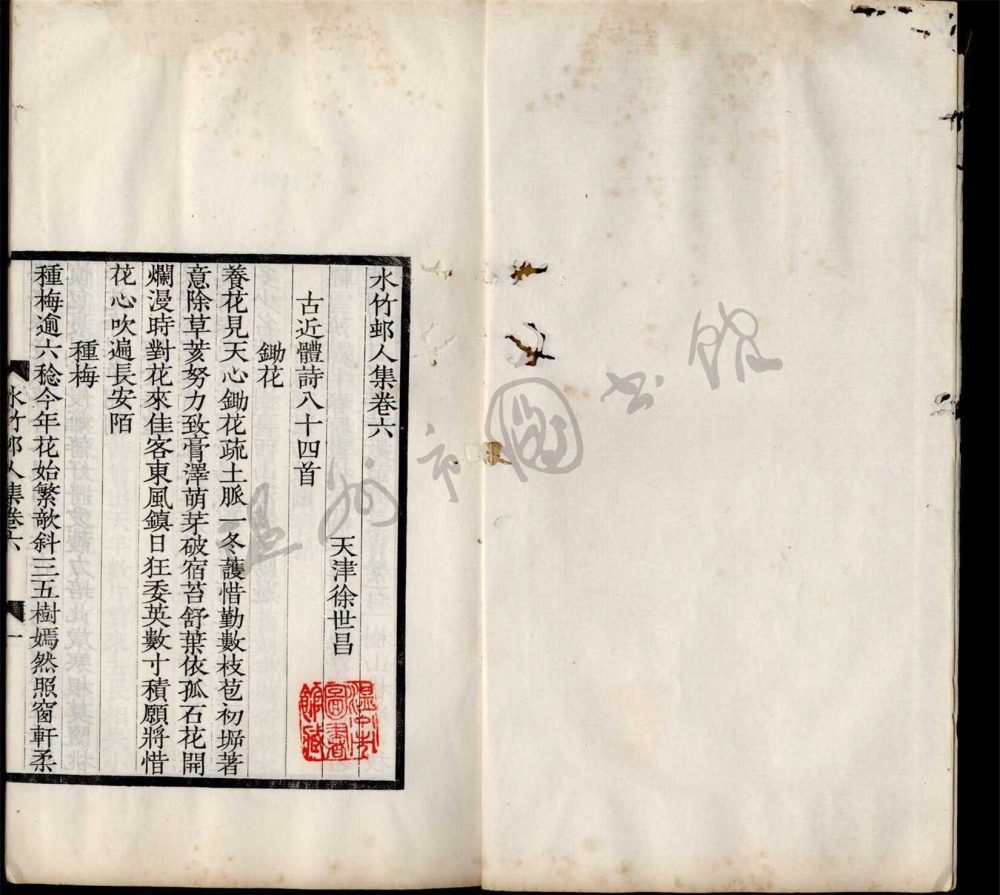 水竹邨人集卷六
天津徐世昌
古近體詩八十四首
鋤花
養花見天心鋤花疏土脈一冬護惜勤數枝苞初坼著
意除草荄努力致膏澤萌芽破宿苔舒葉依孤石花開
爛漫時對花來佳客東風鎮日狂委英數寸積願將惜
花心吹遍長安陌
種梅
種梅逾六稔今年花始繁欹斜三五樹嫣然照窗軒柔
水竹邨人集卷六
一
溫州市圖書館藏
溫州市圖書館